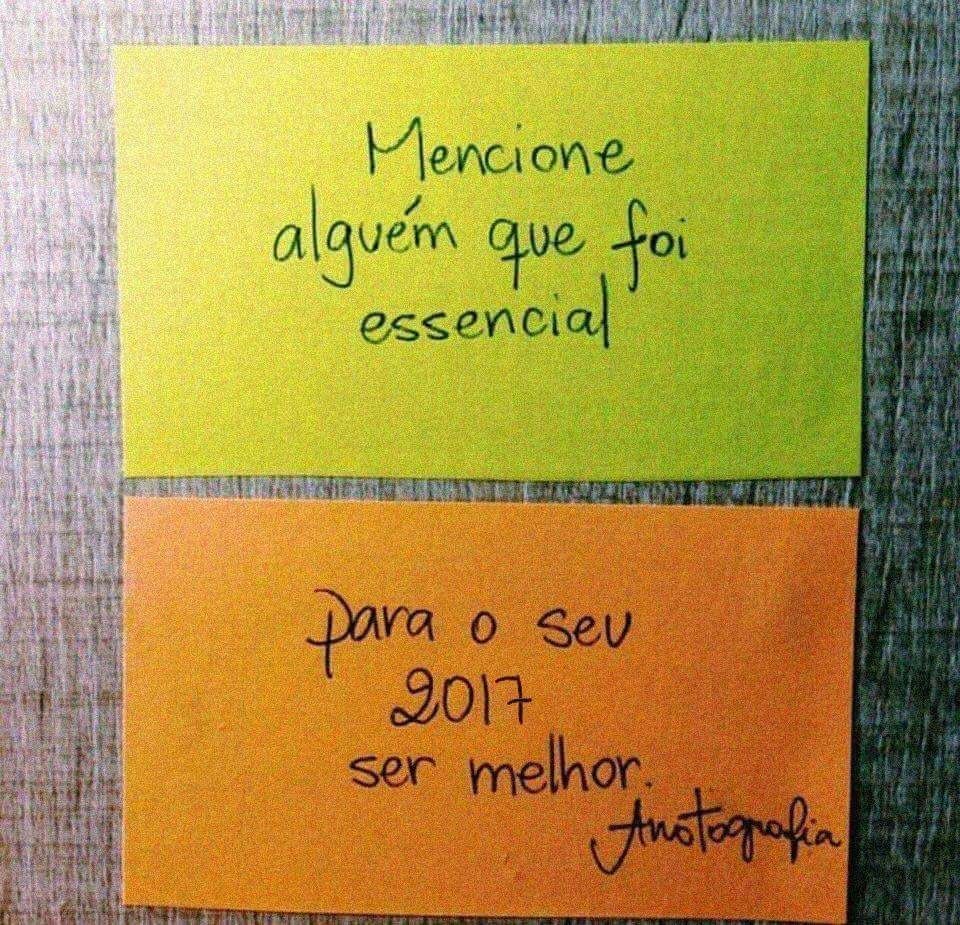 Mencione
alguém que foi
essencial
para o seu
2017
ser melhor.
Anotografia